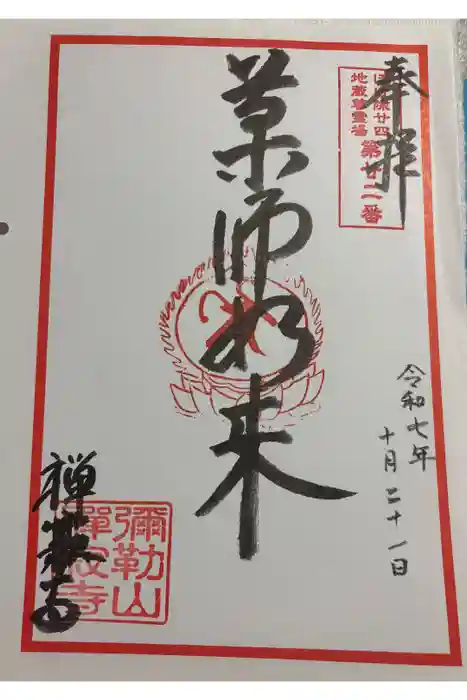 奉拝
ぼけ除廿四
地蔵尊霊場
第廿二番
薬師如来
令和七年
十月二十一日
彌勒山
禪寂寺
禅寂寺